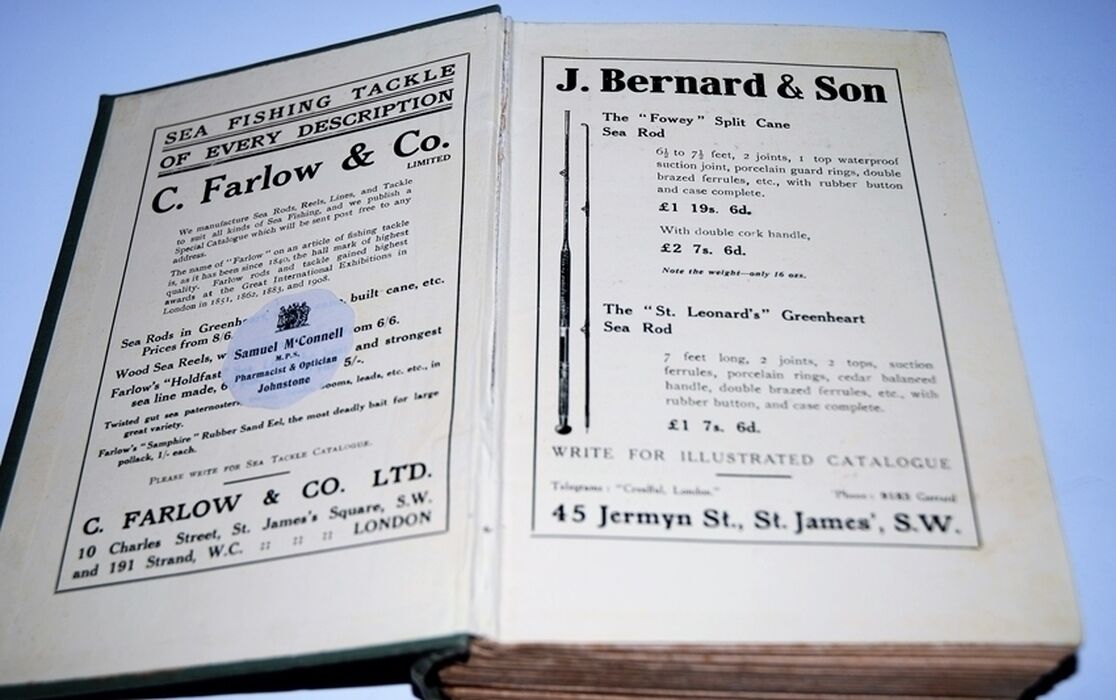 SEA FISHING TACKLE
OF EVERY DESCRIPTION
C. Farlow & Co.
LIMITED
We manufacture Sea Rods, Reels, Lines, and Tackle
to suit all kinds of Sea Fishing, and we publish a
Special Catalogue which will be sent post free to any
address.
The name of "Farlow" on an article of fishing tackle
is, as it has been since 1840, the hall mark of highest
quality. Farlow rods and tackle gained highest
awards at the Great International Exhibitions in
London in 1851, 1862, 1883, and 1908.
Sea Rods in built cane, etc.
Prices from 8/6.
Wood Sea Reels, from 6/6.
Farlow's "Holdfast and strongest
sea line made, 5/-.
Twisted gut sea paternosters, leads, etc. etc., in
great variety.
Farlow's "Samphire" Rubber Sand Eel, the most deadly bait for large
pollack, 1/- each.
PLEASE WRITE FOR SEA TACKLE CATALOGUE.
C. FARLOW & CO. LTD.
10 Charles Street, St. James's Square, S.W.
and 191 Strand, W.C. :: :: :: LONDON
Samuel McConnell
M.P.S.
Pharmacist & Optician
Johnstone
J. Bernard & Son
The "Fowey" Split Cane
Sea Rod
6½ to 7½ feet, 2 joints, 1 top waterproof
suction joint, porcelain guard rings, double
brazed ferrules, etc., with rubber button
and case complete.
£1 19s. 6d.
With double cork handle,
£2 7s. 6d.
Note the weight—only 16 ozs.
The "St. Leonard's" Greenheart
Sea Rod
7 feet long, 2 joints, 2 tops, suction
ferrules, porcelain rings, cedar balanced
handle, double brazed ferrules, etc., with
rubber button, and case complete.
£1 7s. 6d.
WRITE FOR ILLUSTRATED CATALOGUE
Telegrams: London."
Phone: Gerrard
45 Jermyn St., St. James', S.W.